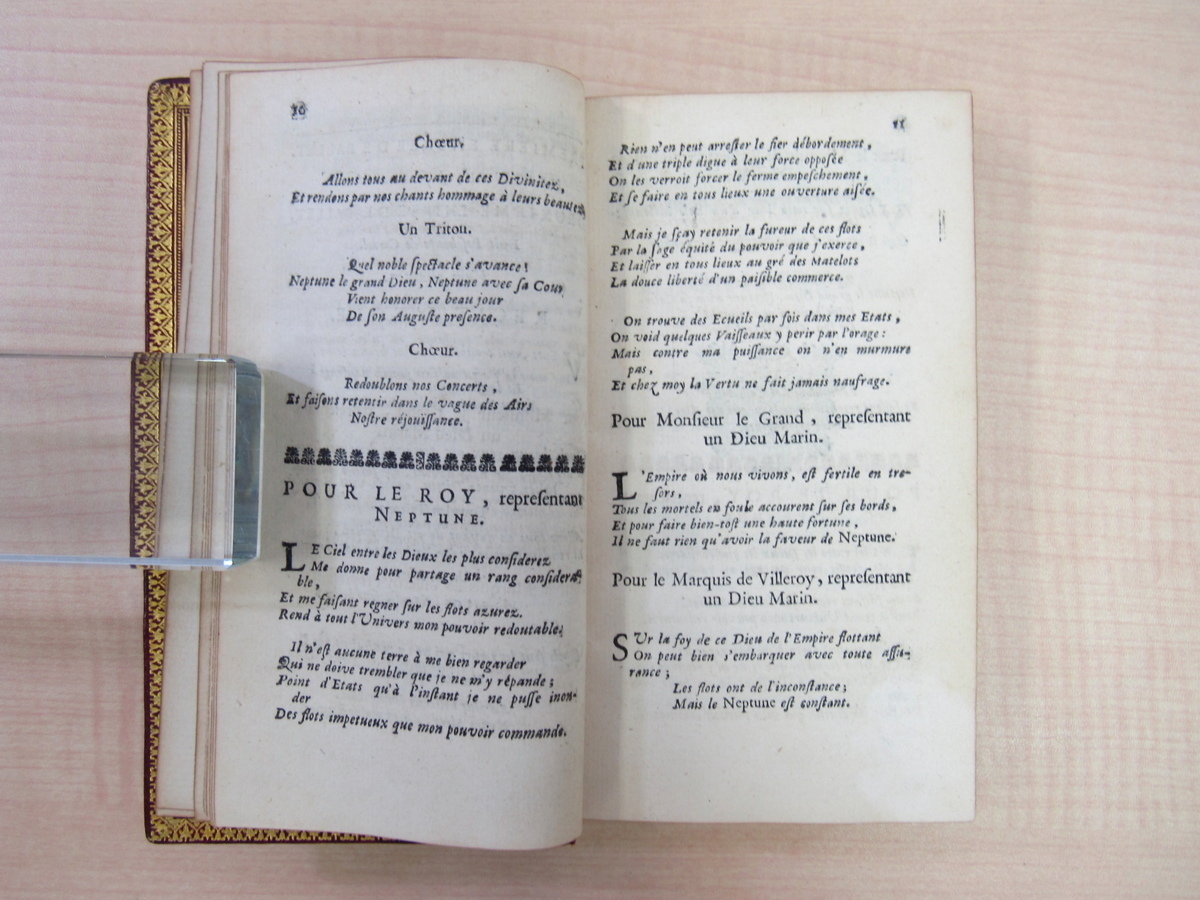 10
Chœur.
Allons tous au devant de ces Divinitez,
Et rendons par nos chants hommage à leurs beautez
Un Triton.
Quel noble ſpectacle s'avance!
Neptune le grand Dieu, Neptune avec ſa Cour
Vient honorer ce beau jour
De ſon Auguſte preſence.
Chœur.
Redoublons nos Concerts,
Et faiſons retentir dans le vague des Airs
Noſtre réjouiſſance.
POUR LE ROY, repreſentant
NEPTUNE.
LE Ciel entre les Dieux les plus conſiderez
Me donne pour partage un rang conſidera-
ble,
Et me faiſant regner ſur les flots azurez.
Rend à tout l'Univers mon pouvoir redoutable.
Il n'eſt aucune terre à me bien regarder
Qui ne doive trembler que je ne m'y répande;
Point d'Etats qu'à l'inſtant je ne puſſe inon-
der
Des flots impetueux que mon pouvoir commande.
11
Rien n'en peut arreſter le fier débordement,
Et d'une triple digue à leur force oppoſée
On les verroit forcer le ferme empeſchement,
Et ſe faire en tous lieux une ouverture aiſée.
Mais je ſçay retenir la fureur de ces flots
Par la ſage équité du pouvoir que j'exerce,
Et laiſſer en tous lieux au gré des Matelots
La douce liberté d'un paiſible commerce.
On trouve des Ecueils par fois dans mes Etats,
On void quelques Vaiſſeaux y perir par l'orage:
Mais contre ma puiſſance on n'en murmure
pas,
Et chez moy la Vertu ne fait jamais naufrage.
Pour Monſieur le Grand, repreſentant
un Dieu Marin.
L'Empire où nous vivons, eſt fertile en tre-
ſors,
Tous les mortels en foule accourent ſur ſes bords,
Et pour faire bien-toſt une haute fortune,
Il ne faut rien qu'avoir la faveur de Neptune.
Pour le Marquis de Villeroy, repreſentant
un Dieu Marin.
SUr la foy de ce Dieu de l'Empire flottant
On peut bien s'embarquer avec toute aſſu-
rance;
Les flots ont de l'inconſtance;
Mais le Neptune eſt conſtant.